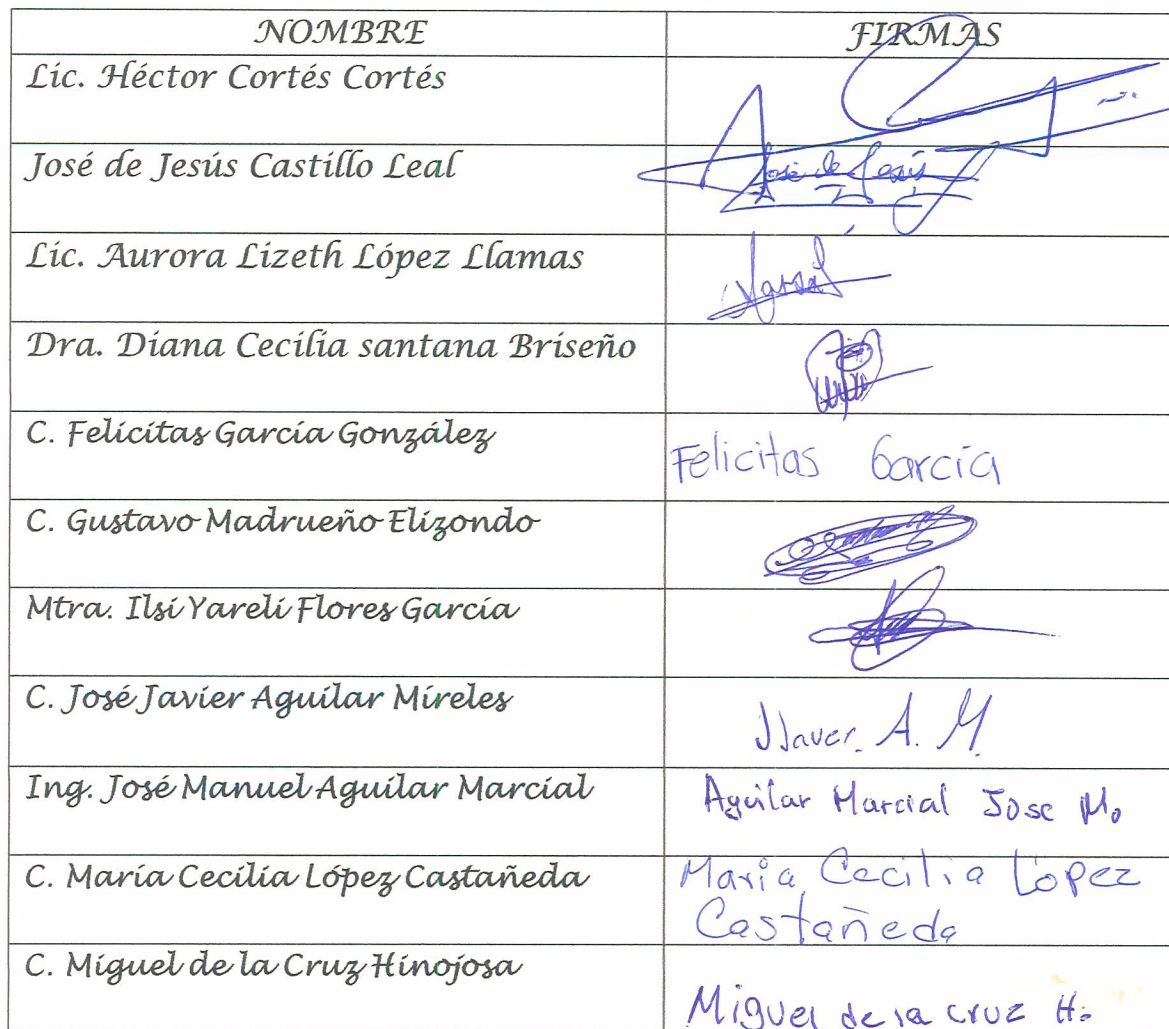 NOMBRE FIRMAS
Lic. Héctor Cortés Cortés
José de Jesús Castillo Leal José de Jesús
Lic. Aurora Lizeth López Llamas
Dra. Diana Cecilia santana Briseño
C. Felicitas García González Felicitas García
C. Gustavo Madrueño Elizondo
Mtra. Ilsi Yareli Flores García
C. José Javier Aguilar Mireles JJaver. A. M.
Ing. José Manuel Aguilar Marcial Aguilar Marcial Jose Mo
C. María Cecilia López Castañeda Maria Cecilia López
Castañeda
C. Miguel de la Cruz Hinojosa Miguel de la cruz H.